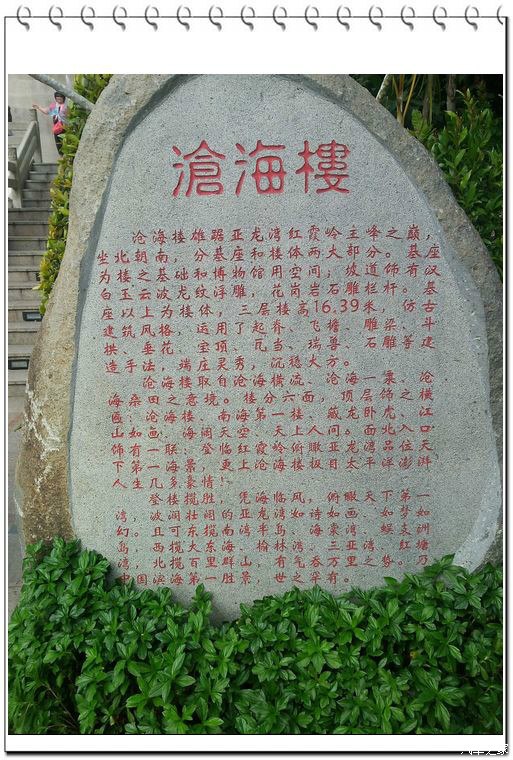 滄海樓
沧海楼雄踞亚龙湾红霞岭主峰之巅,
坐北朝南,分基座和楼体两大部分。基座
为楼之基础和博物馆用空间;坡道饰有汉
白玉云波龙纹浮雕,花岗岩石雕栏杆。基
座以上为楼体,三层楼高16.39米,仿古
建筑风格,运用了起脊、飞檐、雕梁、斗
拱、垂花、宝顶、瓦当、瑞兽、石雕等建
造手法,端庄灵秀,沉稳大方。
沧海楼取自沧海横流、沧海一粟、沧
海桑田之意境。楼分六面,顶层饰之横
匾:沧海楼、南海第一楼、藏龙卧虎、江
山如画、海阔天空、天上人间。面北入口
饰有一联:登临红霞岭俯瞰亚龙湾品位天
下第一海景,更上沧海楼极目太平洋澎湃
人生几多豪情!
登楼揽胜,凭海临风,俯瞰天下第一
湾,波润壮阔的亚龙湾如诗如画、如梦如
幻。且可东揽南湾半岛、海棠湾、蜈支洲
岛,西揽大东海、榆林湾、三亚湾、红塘
湾,北揽百里群山,有气吞万里之势。乃
中国滨海第一胜景,世之罕有。
汽车之家